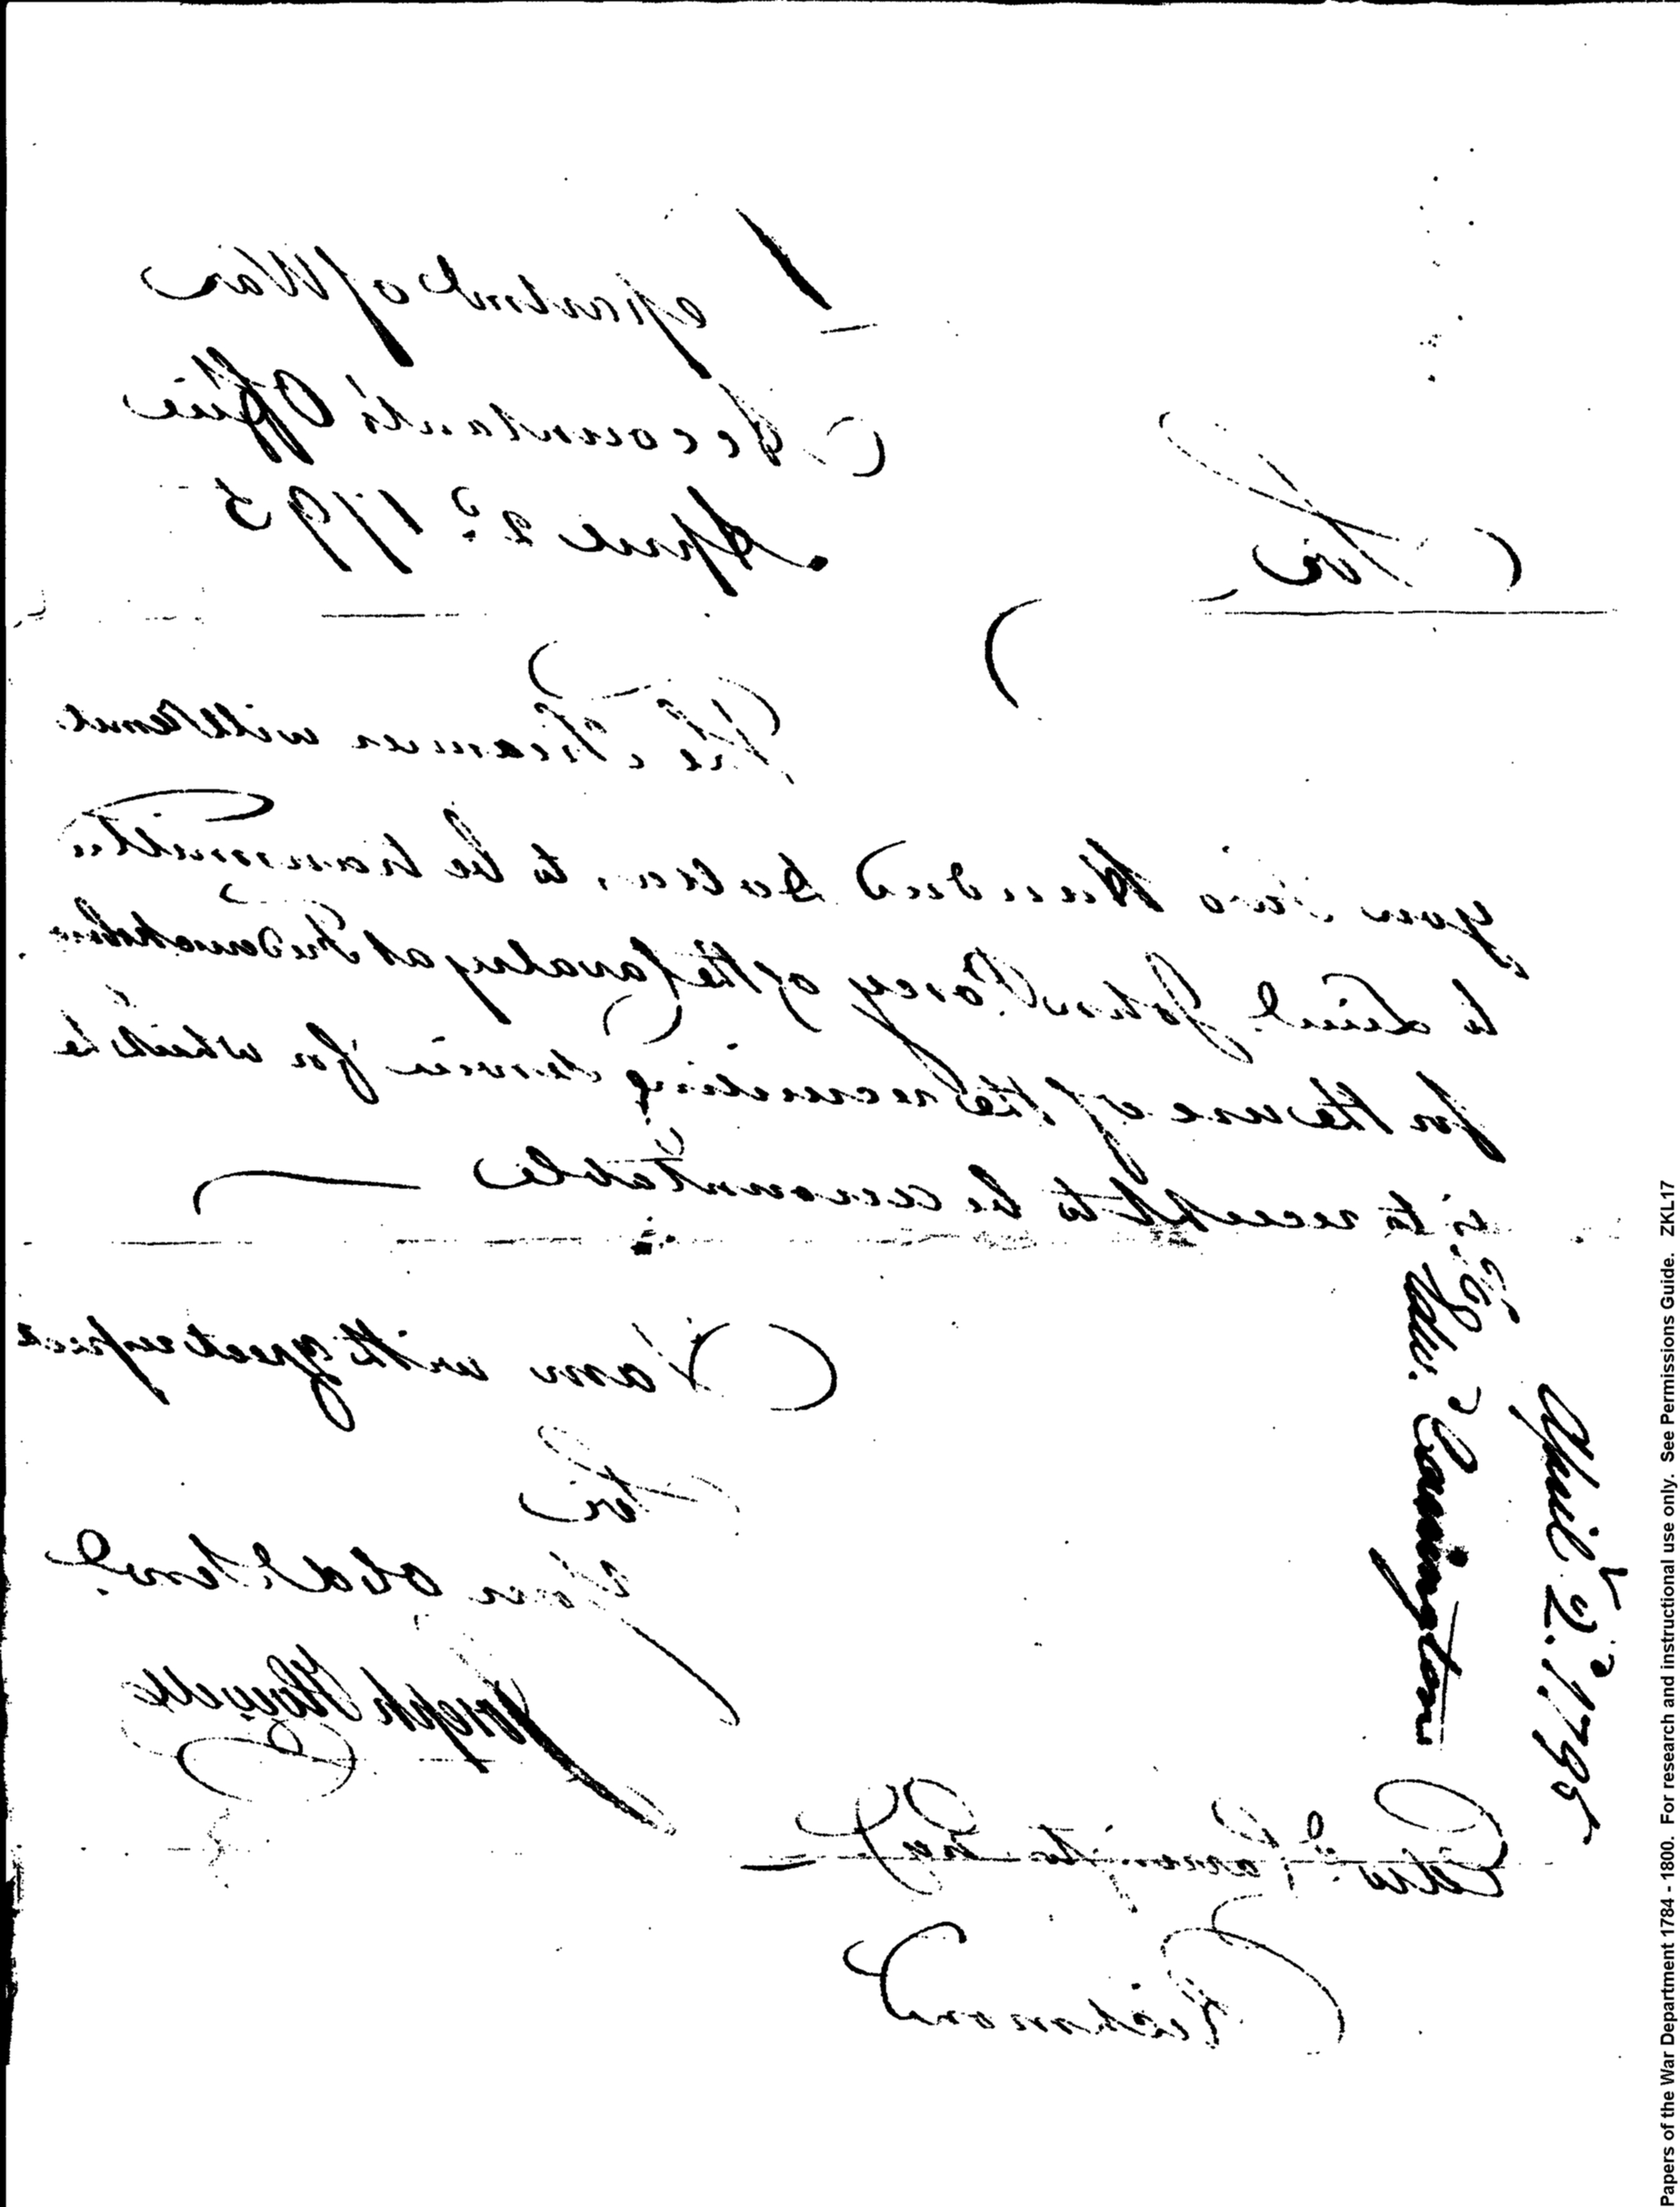 Department of War
Accountant's Office
April 2d 1795
Sir,
The Treasurer will Remit
you two Hundred Dollars, to be transmitted
to Lieut. John Posey of the Cavalry at
for the use of the recruiting service for which he
is to receipt & to be accountable
I am with great respect
Sir
Your obdt. Servt.
Joseph Howell
Edwd. Carrington Esqr
Richmond
Edwd. Carrington
April 2d. 1795
Papers of the War Department 1784 - 1800. For research and instructional use only. See Permissions Guide. ZKL17